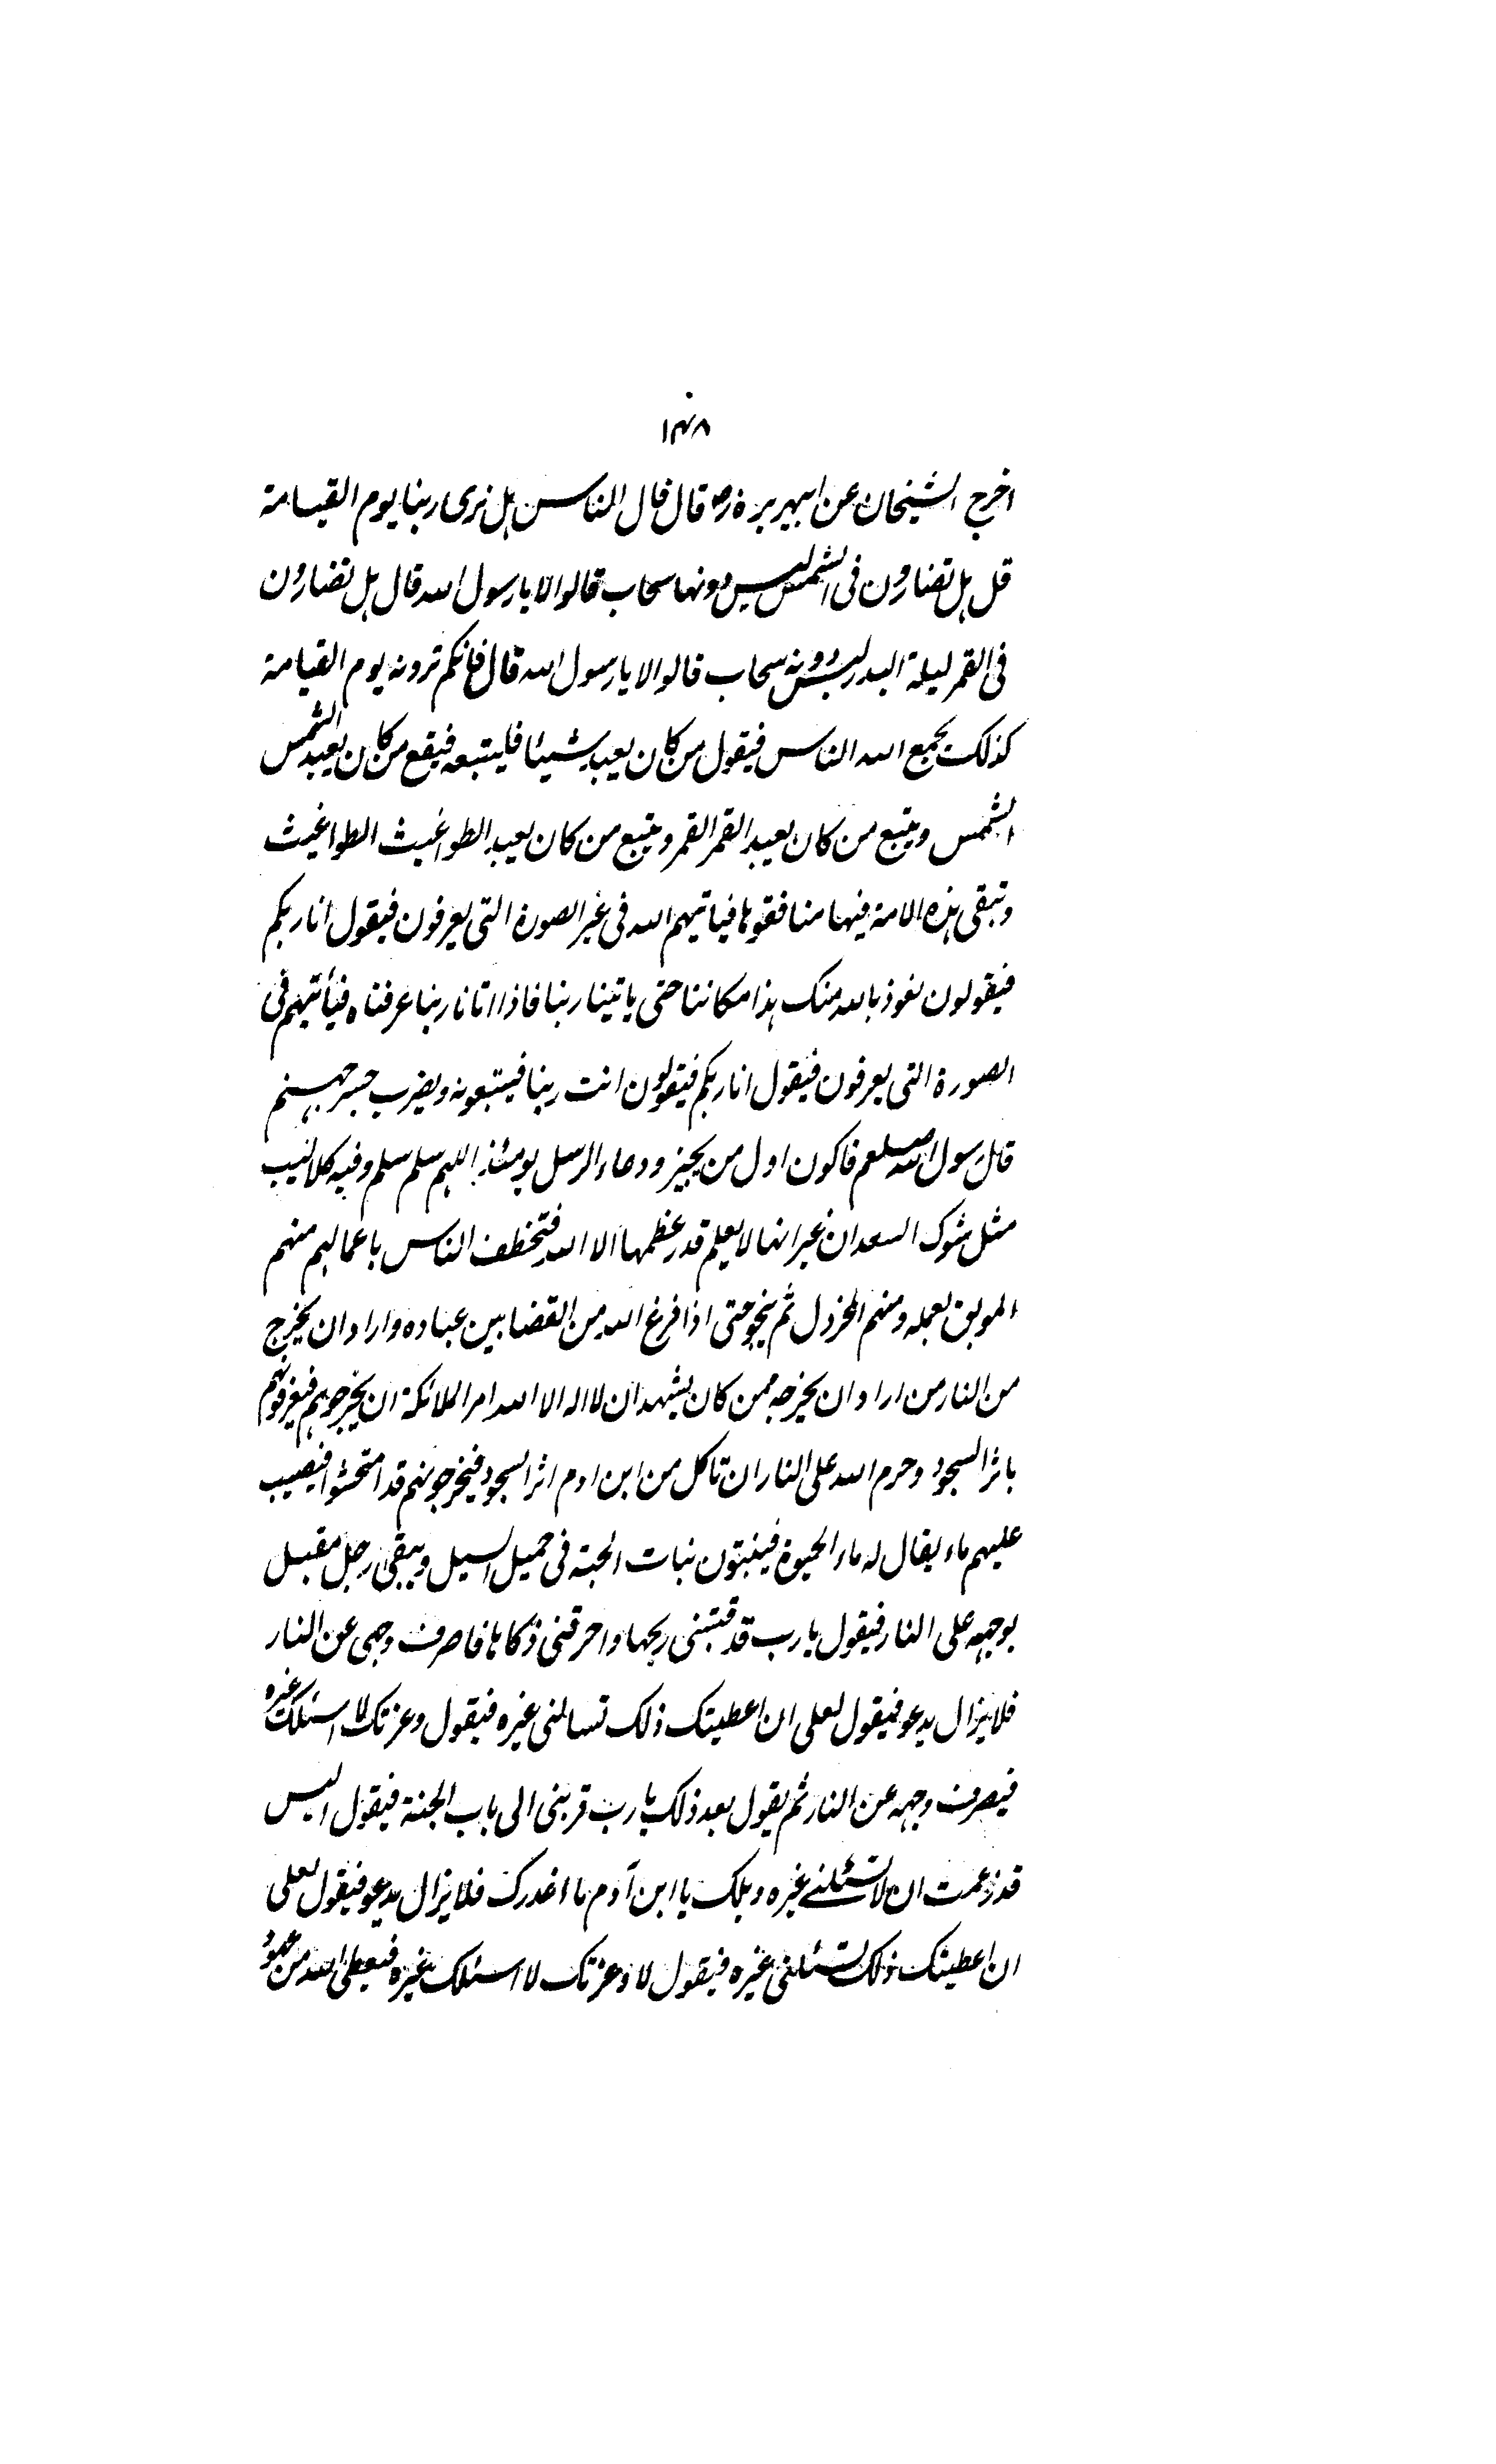 ۱۴۸
اخرج الشیخان عن ابیهریرة رض قال قال الناس هل نری ربنا یوم القیامة
قل هل تضارون فی الشمس لیس دونها سحاب قالوا لا یا رسول الله قال هل تضارون
فی القمر لیلة البدر لیس دونه سحاب قالوا لا یا رسول الله قال فانکم ترونه یوم القیامة
کذلک یجمع الله الناس فیقول من کان یعبد شیئا فلیتبعه فیقع من کان یعبد الشمس
الشمس ویتبع من کان یعبد القمر القمر ویتبع من کان یعبد الطواغیث الطواغیث
وتبقی هذه الامة فیها منافقوها فیاتیهم الله فی غیر الصورة التی یعرفون فیقول انا ربکم
فیقولون نعوذ بالله منک هذا مکاننا حتی یاتینا ربنا فاذا اتانا ربنا عرفناه فیأتیهم فی
الصورة التی یعرفون فیقول انا ربکم فیقولون انت ربنا فیتبعونه ویضرب جسر جهنم
قال رسول الله صلعم فاکون اول من یجیز ودعاء الرسل یومئذ اللهم سلم سلم وفیه کلالیب
مثل شوک السعدان غیر انها لا یعلم قدر عظمها الا الله فتخطف الناس باعمالهم منهم
الموبق بعمله ومنهم المخردل ثم ینجو حتی اذا فرغ الله من القضا بین عباده واراد ان یخرج
من النار من اراد ان یخرجه ممن کان یشهد ان لا اله الا الله امر الملائکة ان یخرجوهم فیعرفونهم
باثر السجود وحرم الله علی النار ان تاکل من ابن ادم اثر السجود فیخرجونهم قد امتحشوا فیصیب
علیهم ماء یقال له ماء الحیوة فینبتون نبات الحبة فی حمیل السیل ویبقی رجل مقبل
بوجهه علی النار فیقول یا رب قد قشبنی ریحها واحرقنی ذکاها فاصرف وجهی عن النار
فلا یزال یدعو فیقول لعلی ان اعطیتک ذلک تسالنی غیره فیقول وعزتک لا اسئلک غیره
فیصرف وجهه عن النار ثم یقول بعد ذلک یا رب قربنی الی باب الجنة فیقول الیس
قد زعمت ان لا تسئلنے غیره ویلک یا ابن آدم ما اغدرک فلا یزال یدعو فیقول لعلی
ان اعطیتک ذلک تسئلنی غیره فیقول لا وعزتک لا اسئلک غیره فیعطی الله من عهود